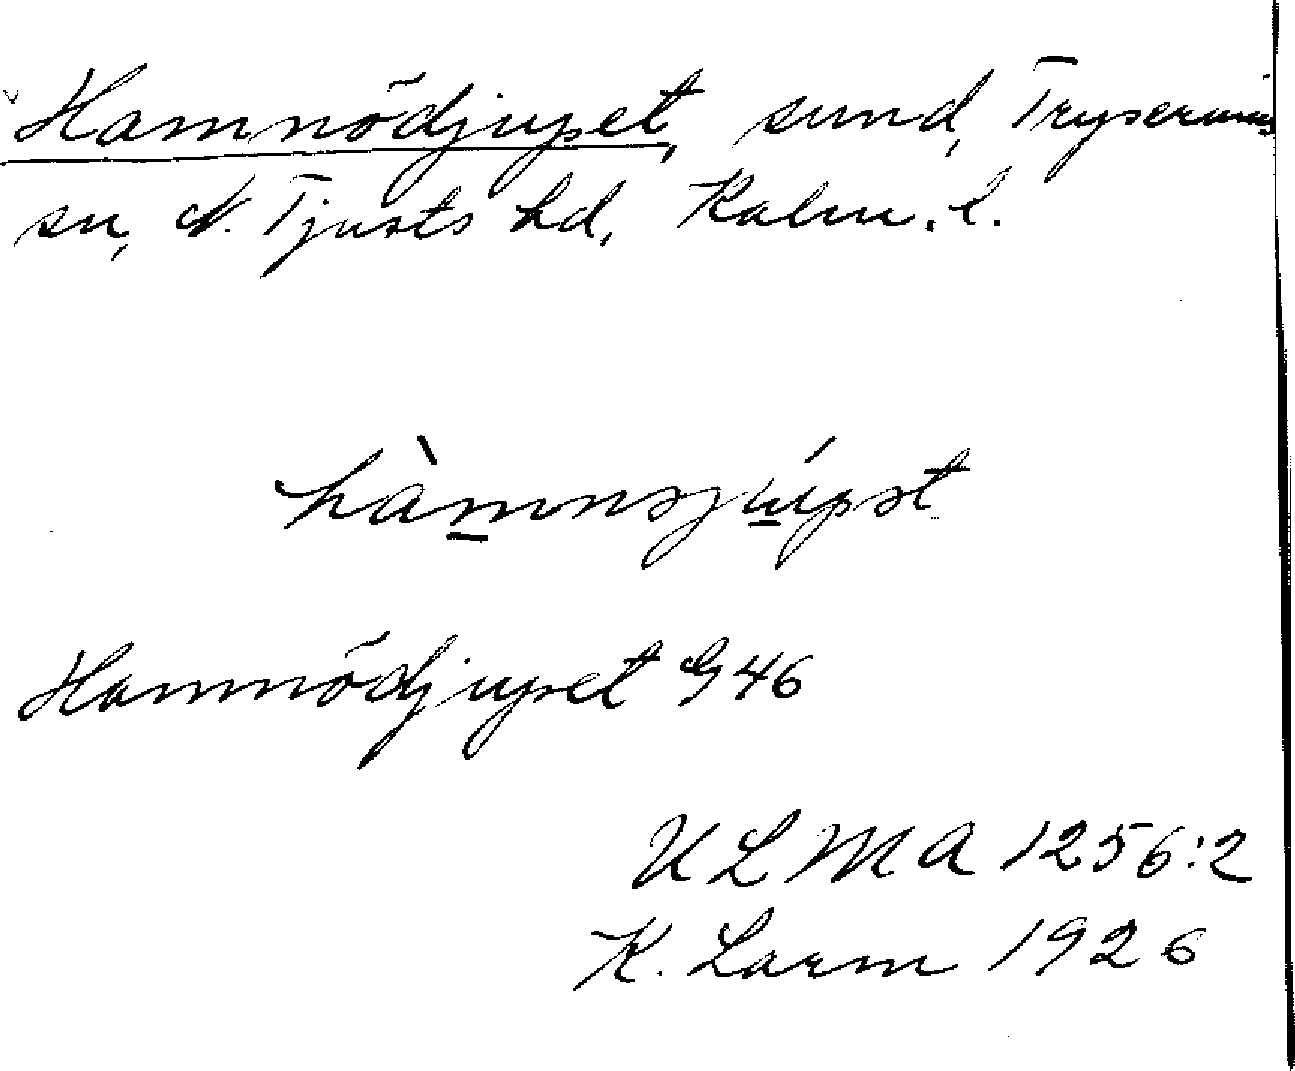 Hamnödjupet, sund, Tryserums
sn, N. Tjusts hd, Kalm. l.
hàmnsjúpət
Hamnödjupet G 46
ULMA 1256:2
K. Larm 1926